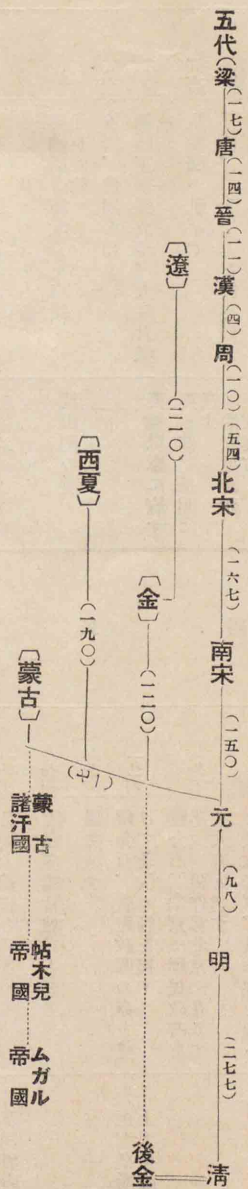 五代(梁(一七)唐(一四)晉(一一)漢(四)周(一〇)(五四)北宋(一六七)南宋(一五〇)元(九八)明(二七七)清
〔遼〕(二一〇)
〔金〕(一二〇)後金
〔西夏〕(一九〇)
〔蒙古〕
蒙古諸汗國
帖木兒帝國
ムガル帝國